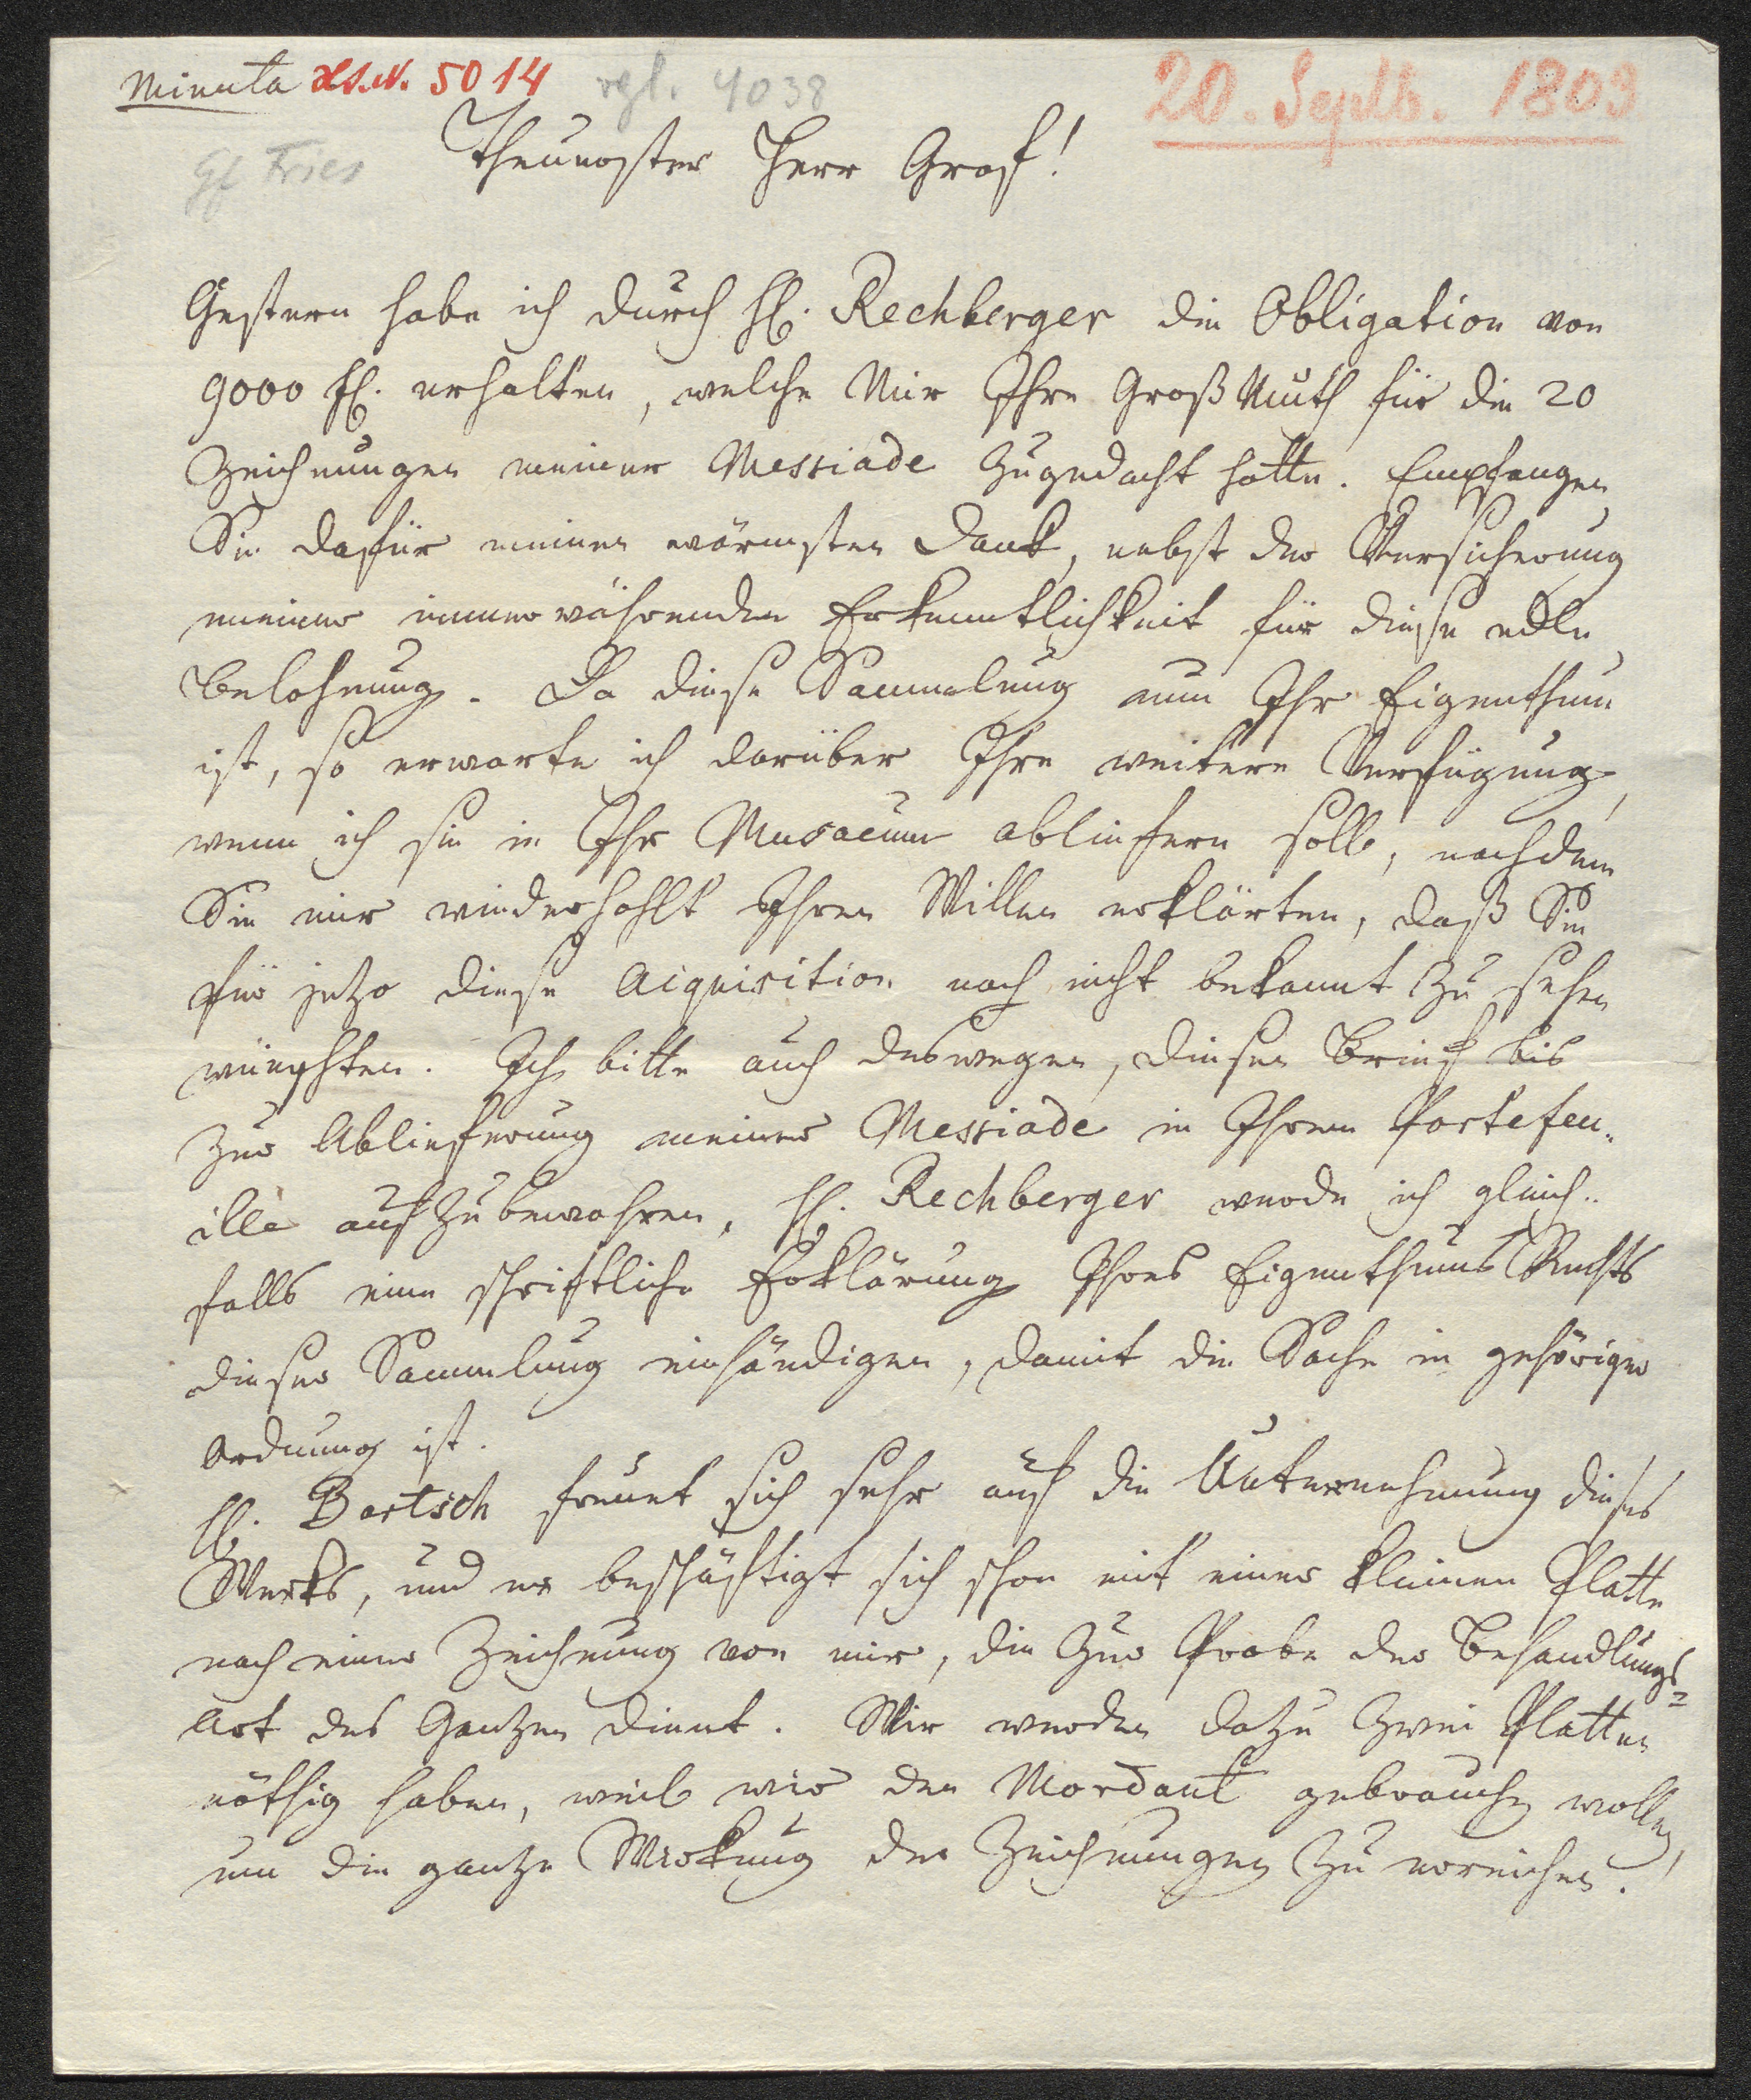 Minuta Hs.N. 5014 vgl. 4038
20. Septb. 1803
Gf Fries
Theuerster Herr Graf!
Gestern habe ich durch H. Rechberger die Obligation von
9000 fl. erhalten, welche Mir Ihre Großmuth für die 20
Zeichnungen meiner Messiade zugedacht hatte. Empfangen
Sie dafür meinen wärmsten Dank, nebst der Versicherung
meiner immerwährenden Erkenntlichkeit für diese edle
Belohnung. Da diese Sammlung nun Ihr Eigenthum
ist, so erwarte ich darüber Ihre weitere Verfügung,
wenn ich sie in Ihr Musaeum abliefern soll, nachdem
Sie mir wiederhohlt Ihren Willen erklärten, daß Sie
für jetzo diese Aiquisition noch nicht bekannt zu sehen
wünschten. Ich bitte auch deswegen, diesen Brief bis
zur Ablieferung meiner Messiade in Ihrem Portefeu-
ille aufzubewahren, H. Rechberger werde ich gleich-
falls eine schriftliche Erklärung Ihres Eigenthums Rechts
dieser Sammlung einhändigen, damit die Sache in gehöriger
Ordnung ist.
H. Bartsch freuet sich sehr auf die Unternehmung dieses
Werks, und er beschäftigt sich schon mit einer kleinen Platte
nach einer Zeichnung von mir, die zur Probe der Behandlungs-
Art des Ganzen dient. Wir werden dazu zwei Platten
nöthig haben, weil wir den Mordant gebrauchen wollen,
um die ganze Wirkung der Zeichnungen zu erreichen.